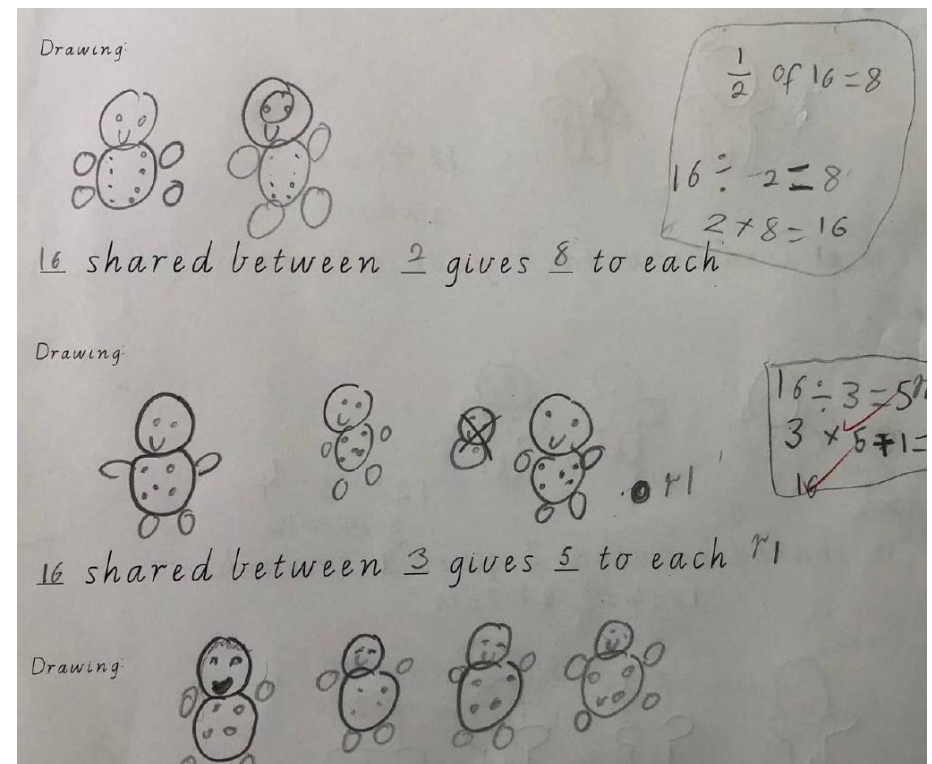 Drawing:
1/2 of 16 = 8
16 ÷ 2 = 8
2 × 8 = 16
16 shared between 2 gives 8 to each
Drawing:
16 ÷ 3 = 5
3 × 5 + 1 =
16
r1
16 shared between 3 gives 5 to each r1
Drawing: